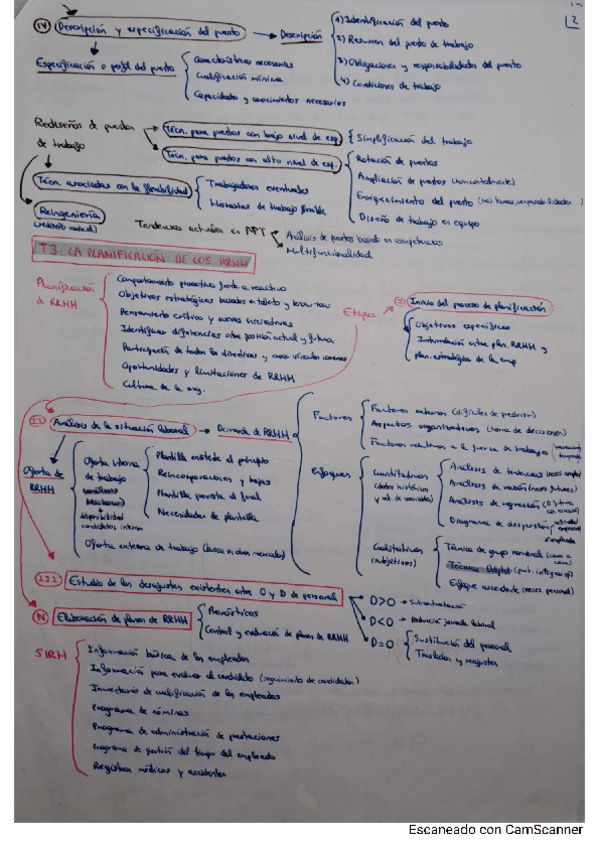 2
IV Descripción y especificación del puesto → Descripción
1) Identificación del puesto
2) Resumen del puesto de trabajo
3) Obligaciones y responsabilidades del puesto
4) Condiciones de trabajo
Especificación o perfil del puesto
Características necesarias
Cualificación mínima
Capacidades y conocimientos necesarios
Rediseños de puestos
de trabajo
Técn. para puestos con bajo nivel de esp.
Simplificación del trabajo
Técn. para puestos con alto nivel de esp.
Rotación de puestos
Ampliación de puestos (horizontalmente)
Enriquecimiento del puesto
Diseño de trabajo en equipo
Técn. asociadas con la flexibilidad
Trabajadores eventuales
Horarios de trabajo flexible
Reingeniería
Tendencias actuales en APT
Análisis de puestos basado en competencias
Multifuncionalidad
T3. LA PLANIFICACIÓN DE LOS RRHH
Planificación
de RRHH
Comportamiento proactivo frente a reactivo
Objetivos estratégicos basados en talento y know how
Pensamiento crítico y nuevas iniciativas
Identificar diferencias entre posición actual y futura
Participación de todos los directivos y crear vínculos comunes
Oportunidades y limitaciones de RRHH
Cultura de la org.
Etapas
I) Inicio del proceso de planificación
Objetivos específicos
Interrelación entre plan. RRHH y
plan. estratégica de la emp
II) Análisis de la situación laboral → Demanda de RRHH
Factores
Factores externos (difíciles de predecir)
Aspectos organizativos (toma de decisiones)
Factores relativos a la fuerza de trabajo
Enfoques
Cuantitativos
(datos históricos
y rel. de variables)
Análisis de tendencias
Análisis de razón
Análisis de regresión
Diagrama de dispersión
Cualitativos
(subjetivos)
Técnica de grupo nominal
Técnica Delphi
Enfoque ascendente (neces. personal)
Oferta de
RRHH
Oferta interna
de trabajo
disponibilidad
candidatos internos
Plantilla existente al principio
Reincorporaciones y bajas
Plantilla prevista al final
Necesidades de plantilla
Oferta externa de trabajo (busca en otros mercados)
III) Estudio de los desajustes existentes entre O y D de personal
D>O → Subcontratación
D<O → Reducción jornada laboral
D=O
Sustitución del personal
Traslados y reajustes
IV Elaboración de planes de RRHH
Pronósticos
Control y evaluación de planes de RRHH
SIRH
Información básica de los empleados
Información para evaluar al candidato (seguimiento de candidatos)
Inventario de cualificación de los empleados
Programa de nóminas
Programa de administración de prestaciones
Programa de gestión del tiempo del empleado
Registros médicos y accidentes
Escaneado con CamScanner